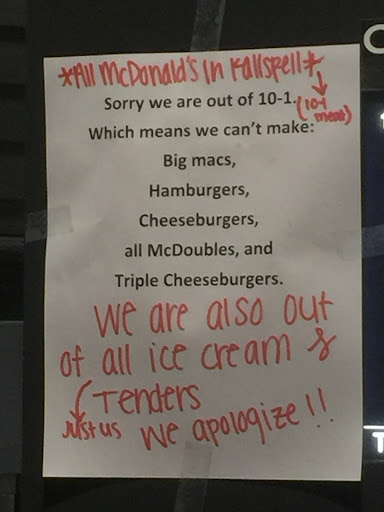 *All McDonald's In Kalispell*
Sorry we are out of 10-1. (10-1 meat)
Which means we can't make:
Big macs,
Hamburgers,
Cheeseburgers,
all McDoubles, and
Triple Cheeseburgers.
We are also out
of all ice cream &
Tenders
Just us We apologize!!